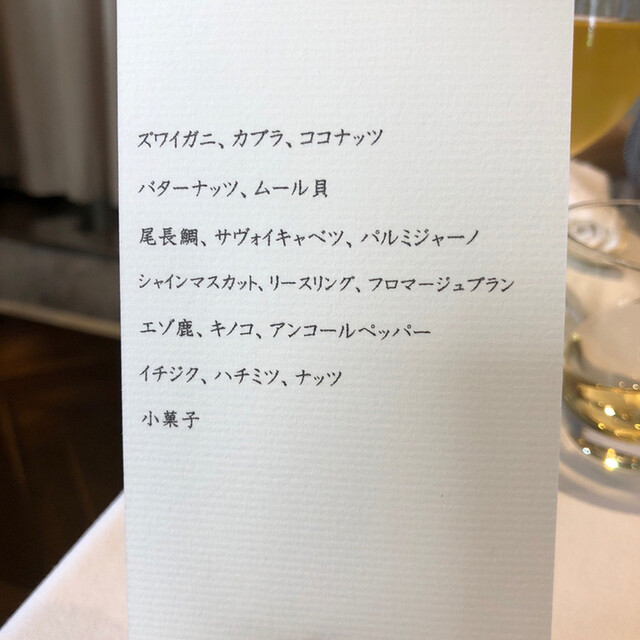 ズワイガニ、カブラ、ココナッツ
バターナッツ、ムール貝
尾長鯛、サヴォイキャベツ、パルミジャーノ
シャインマスカット、リースリング、フロマージュブラン
エゾ鹿、キノコ、アンコールペッパー
イチジク、ハチミツ、ナッツ
小菓子